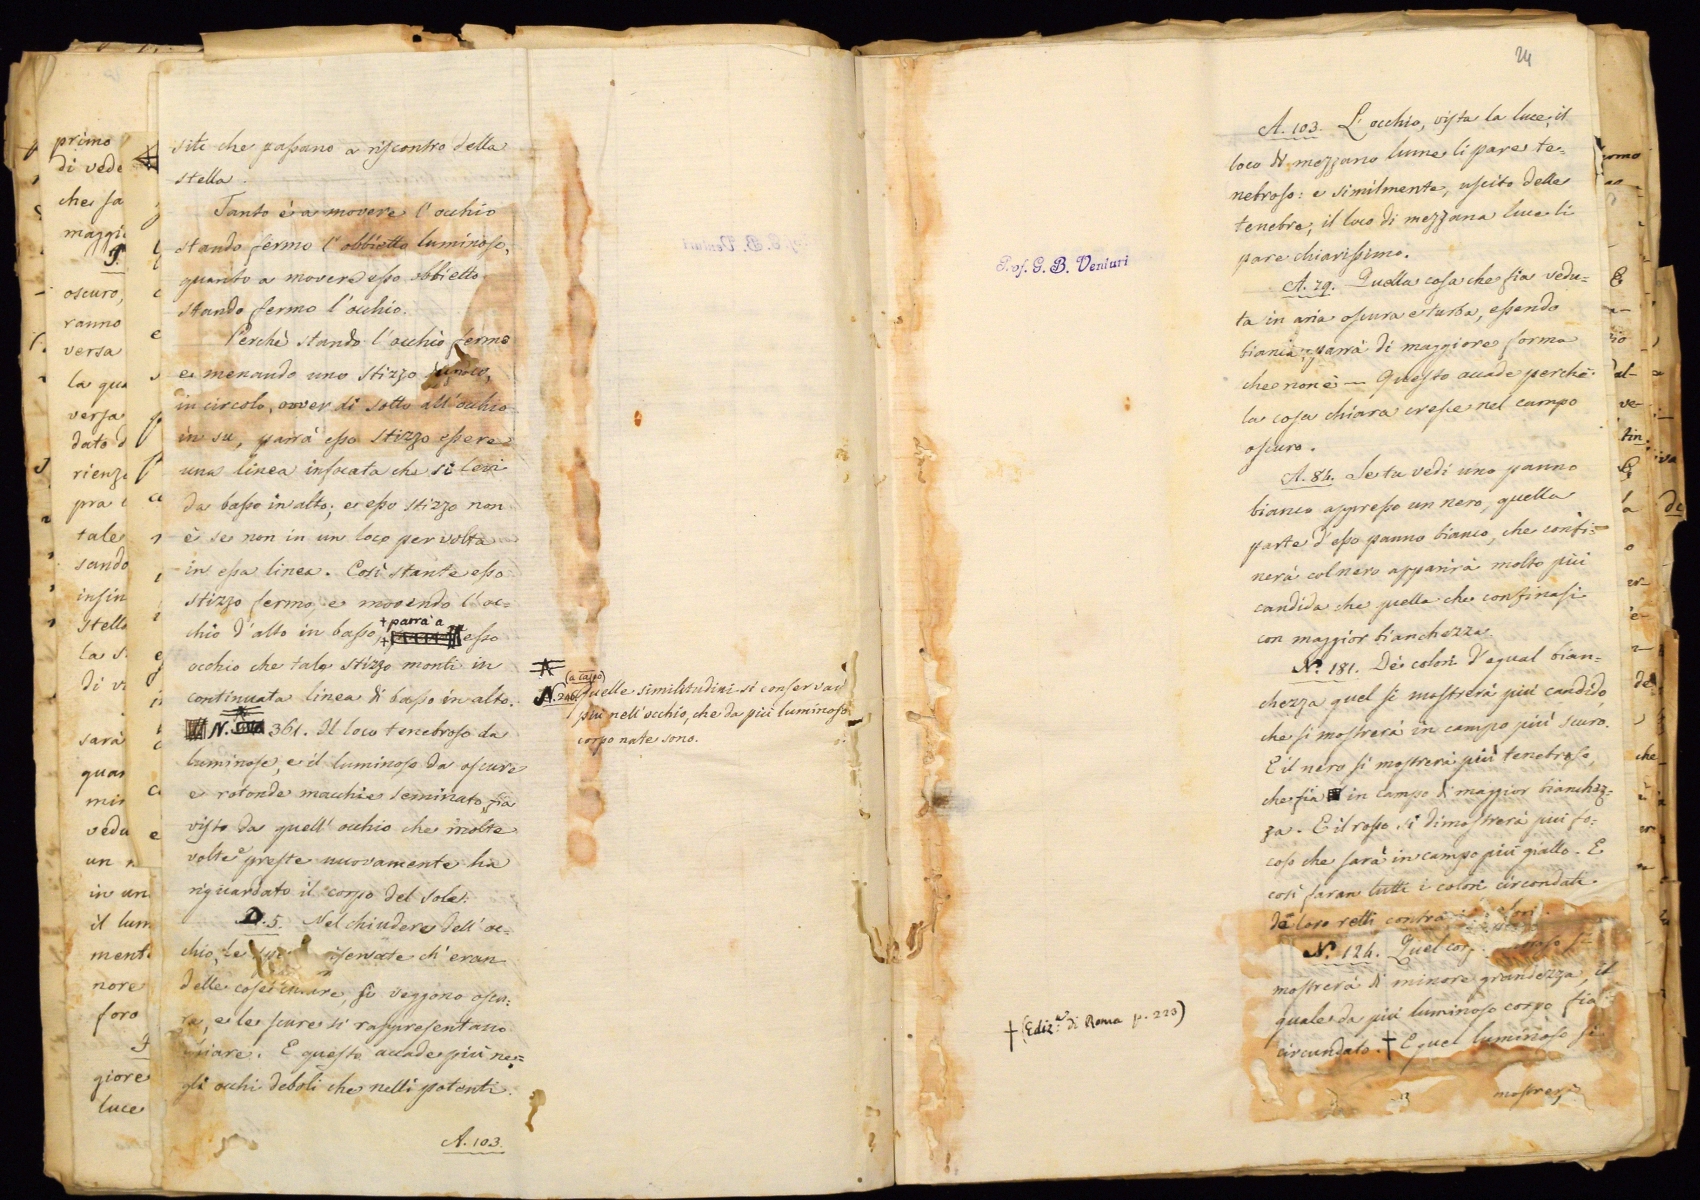 siti che passano a riscontro della
stella.
Tanto è a movere l'occhio
stando fermo l'obbietto luminoso,
quanto a movere esso obbietto
stando fermo l'occhio.
Perchè stando l'occhio fermo
e menando uno stizzo
in circolo, over di sotto all'occhio
in su, parrà esso stizzo essere
una linea infocata che si levi
da basso in alto; e esso stizzo non
è se non in un loco per volta
in essa linea. Così stante esso
stizzo fermo, e movendo l'oc=
chio d'alto in basso, + parrà a esso
occhio che tale stizzo monti in
continuata linea di basso in alto.
N. 361. Il loco tenebroso da
luminose, e il luminoso da oscure
e rotonde macchie seminato, fia
visto da quell'occhio che molte
volte e preste nuovamente ha
riguardato il corpo del sole.
D. 5. Nel chiudere dell'oc=
chio, le servate ch'eran
delle cose, si veggono oscu=
re, e le scure si rappresentano
chiare. E questo accade più ne=
gli occhi deboli che nelli potenti.
A. 103.
(a tasso)
N. 240 Quelle similitudini si conservan
più nell'occhio, che da più luminoso
corpo nate sono.
primo
di vede
che sa
maggi
oscuro,
ranno
versa
la qua
versa
dato d
rienz
pra
tale
sando
infin
stella
la s
di v
sarà
quan
min
vedu
un n
in un
il lum
ment
nore
foro
giore
luce
24
Prof. G. B. Venturi
A. 103. L'occhio, vista la luce, il
loco di mezzano lume li pare te=
nebroso: e similmente, uscito delle
tenebre, il loco di mezzana luce li
pare chiarissimo.
A. 79. Quella cosa che fia vedu=
ta in aria oscura e turba, essendo
bianca, parrà di maggiore forma
che non è — Questo accade perchè
la cosa chiara cresce nel campo
oscuro.
A. 84. Se tu vedi uno panno
bianco appresso un nero, quella
parte d'esso panno bianco, che confi=
nerà col nero apparirà molto più
candida che quella che confinasi
con maggior bianchezza.
N. 181. De' colori d'egual bian=
chezza quel si mostrerà più candido,
che si mostrerà in campo più scuro.
E il nero si mostrerà più tenebroso,
che fia in campo di maggior bianchez=
za. E il rosso si dimostrerà più fo=
coso che sarà in campo più giallo. E
così faran tutti i colori circondati
de' loro retti contra
N. 124. Quel
mostrerà di minore grandezza, il
quale da più luminoso corpo fia
circundato. † E quel luminoso si
mostrerà
† (Ediz.ne di Roma p. 223)